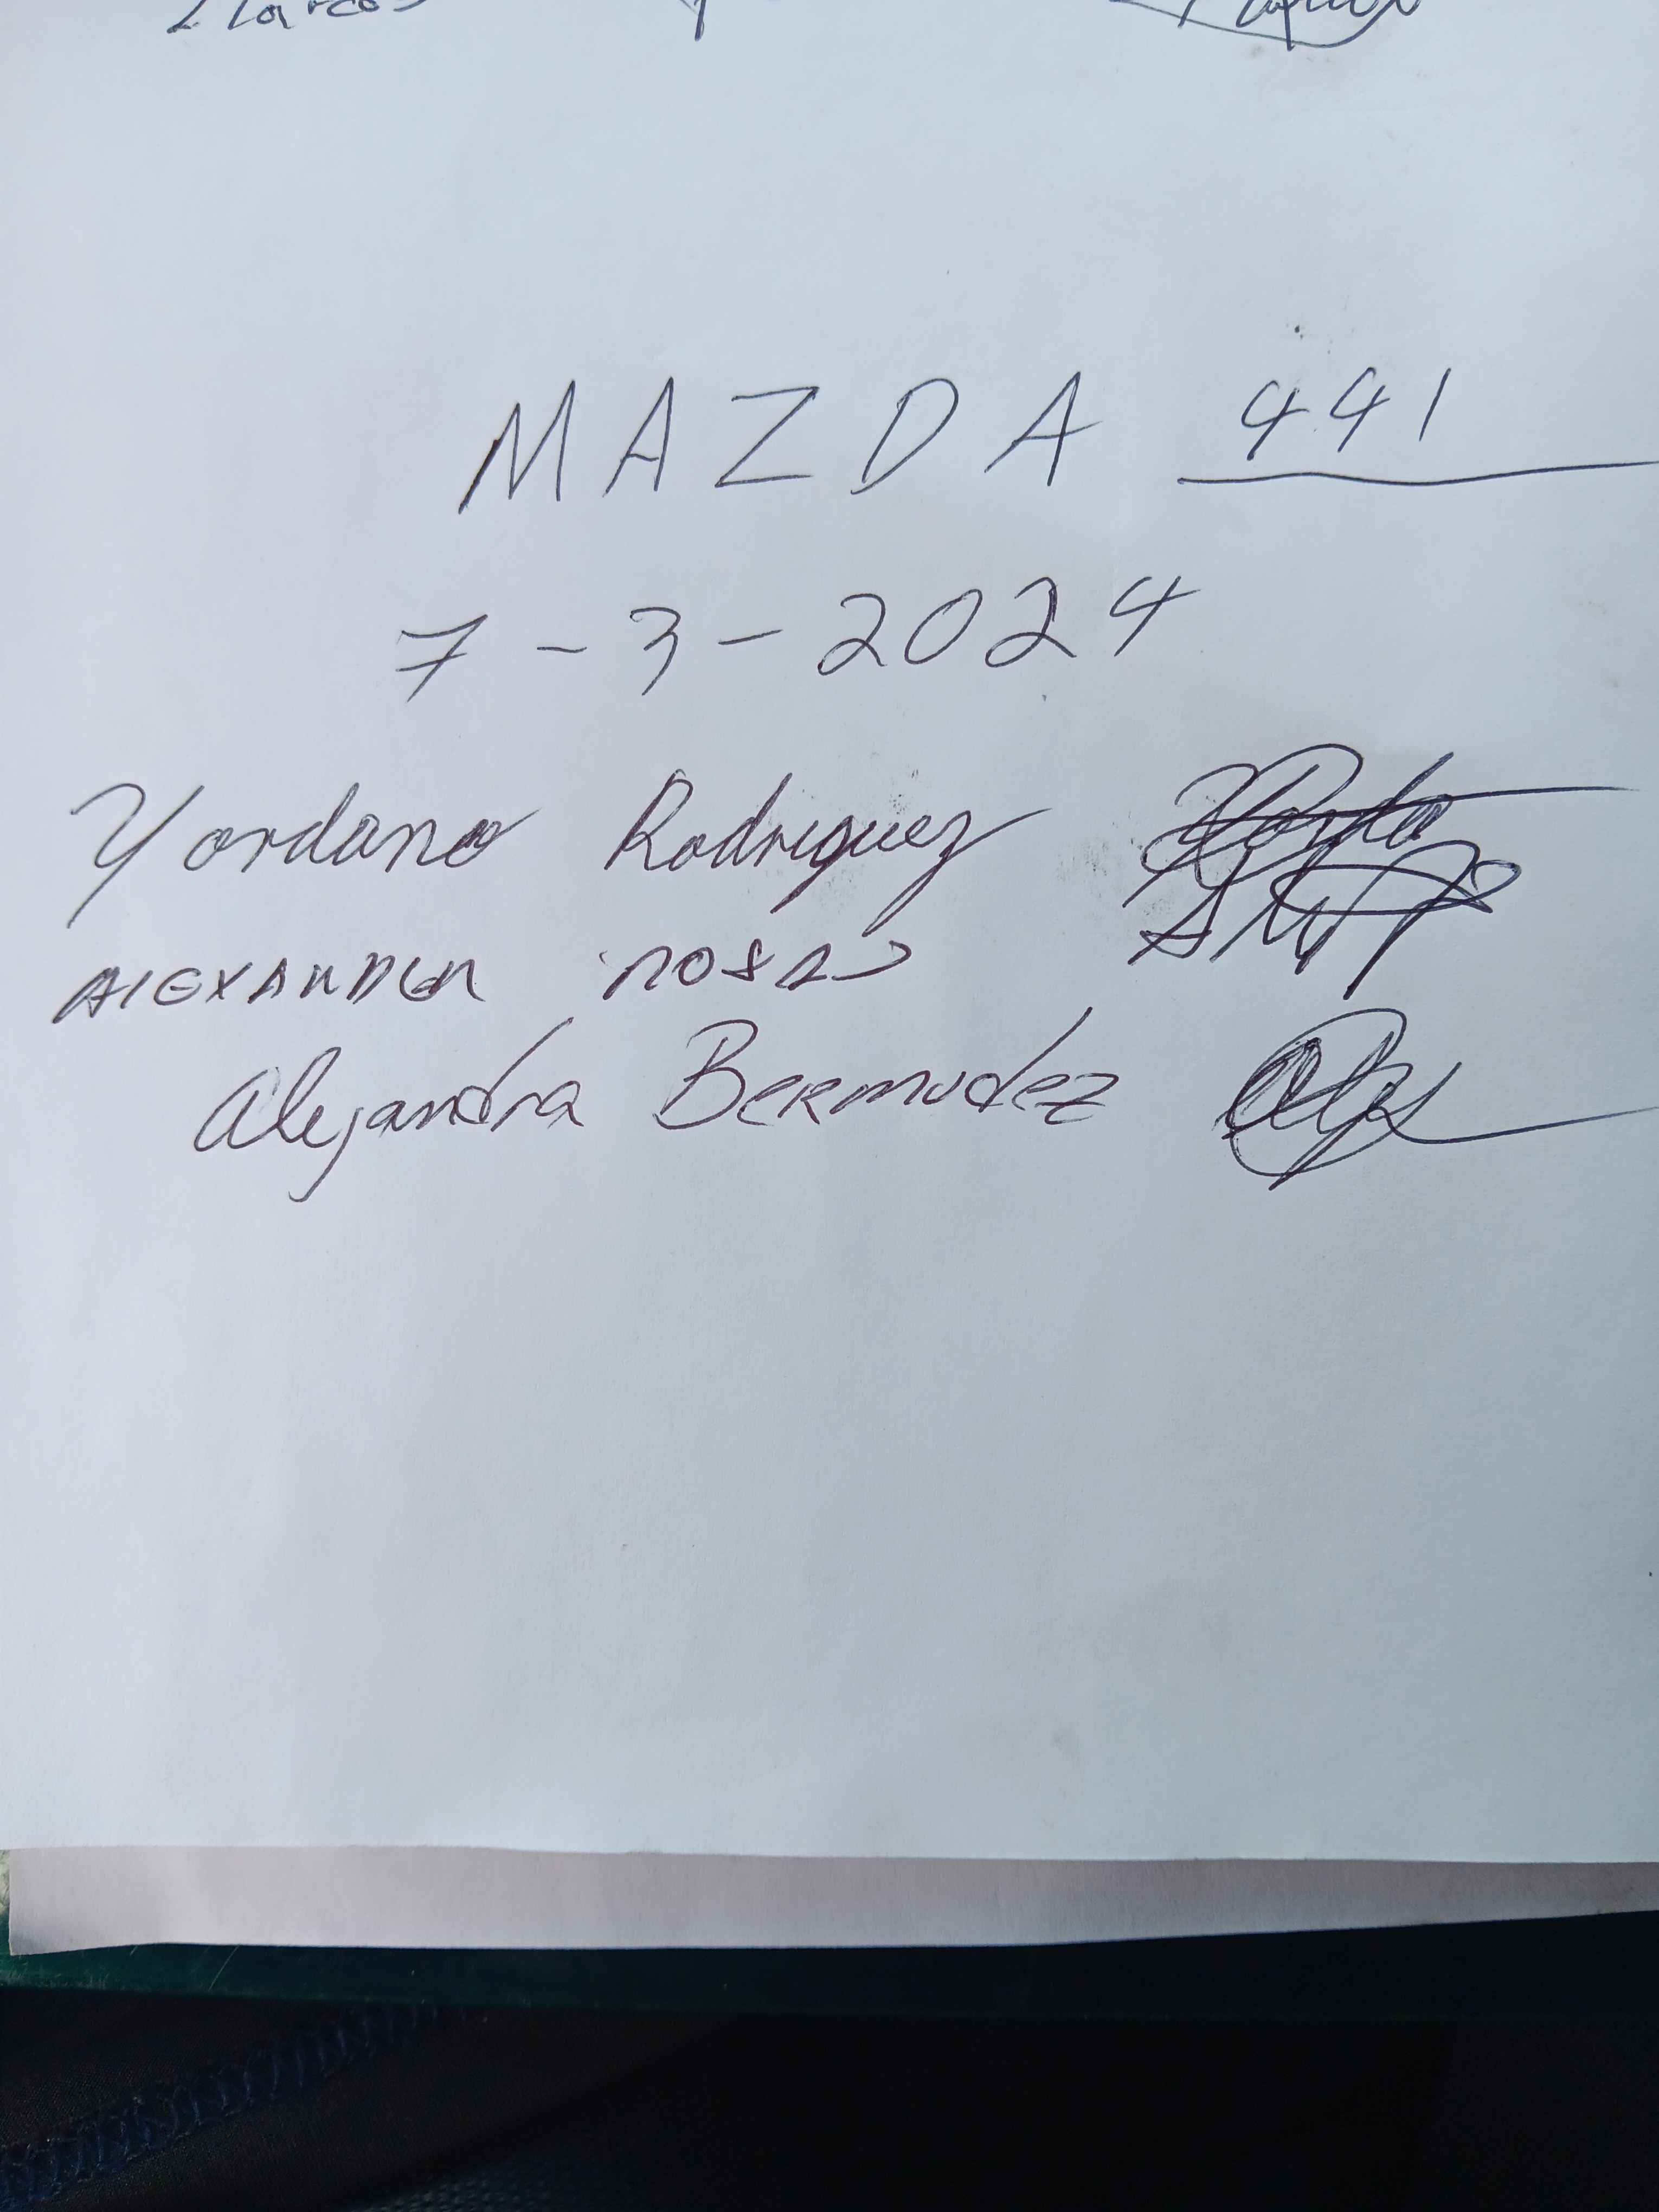 MAZDA 441
7-3-2024
Yordano Rodriguez
ALEXANDER ROSAS
Alejandra Bermudez